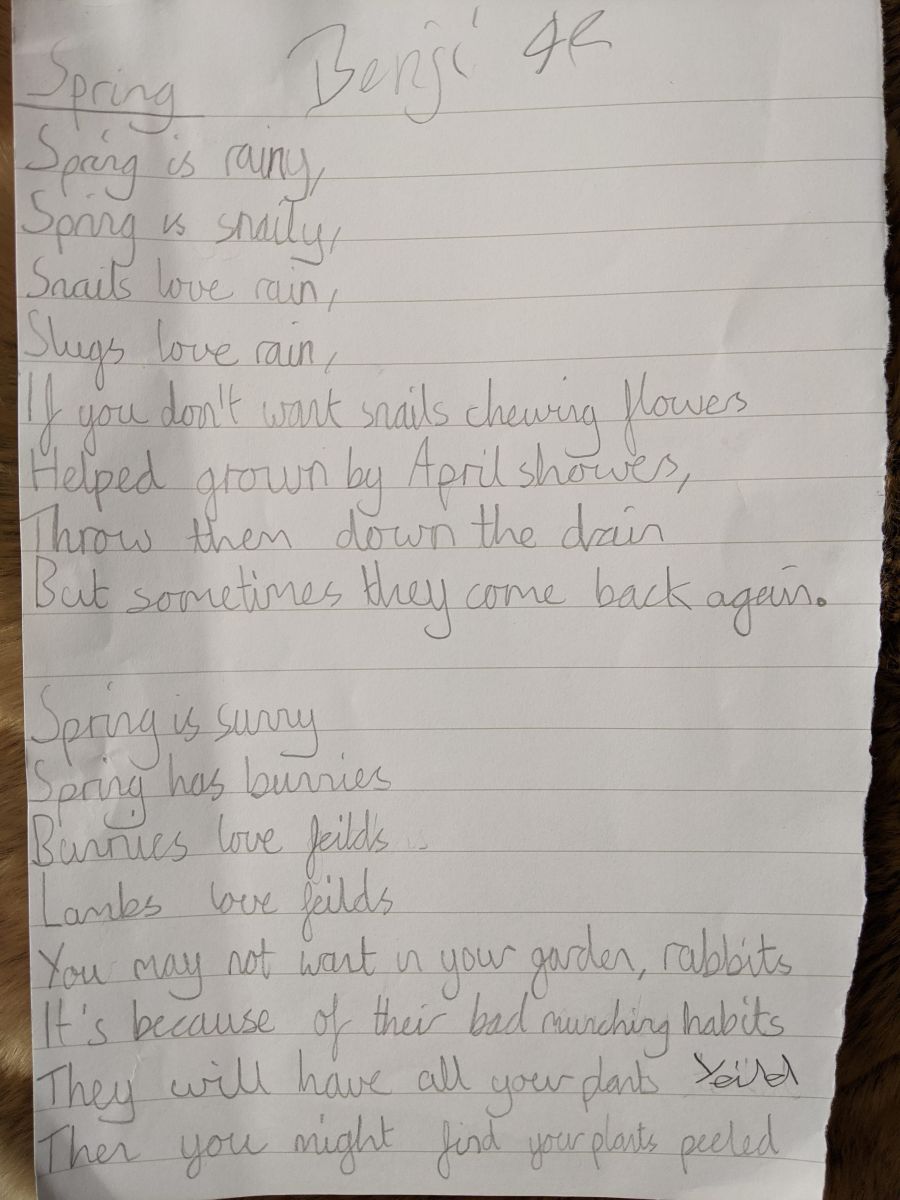 Spring Benji 4R
Spring is rainy,
Spring is snaily,
Snails love rain,
Slugs love rain,
If you don't want snails chewing flowers
Helped grown by April showers,
Throw them down the drain
But sometimes they come back again.
Spring is sunny
Spring has bunnies
Bunnies love feilds
Lambs love feilds
You may not want in your garden, rabbits
It's because of their bad munching habits
They will have all your plants Yeild
Then you might find your plants peeled